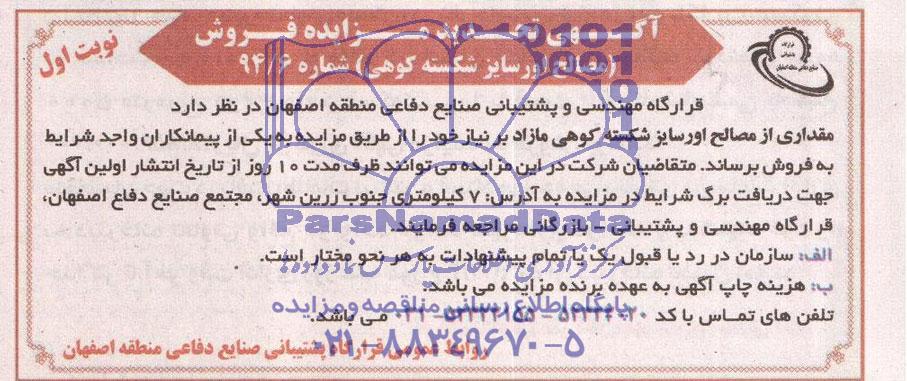 آگهی تجدید مزایده فروش
(مصالح اورسایز شکسته کوهی) شماره ۹۴/۶
نوبت اول
قرارگاه مهندسی و پشتیبانی صنایع دفاعی منطقه اصفهان در نظر دارد
مقداری از مصالح اورسایز شکسته کوهی مازاد بر نیاز خود را از طریق مزایده به یکی از پیمانکاران واجد شرایط
به فروش برساند. متقاضیان شرکت در این مزایده می توانند ظرف مدت ۱۰ روز از تاریخ انتشار اولین آگهی
جهت دریافت برگ شرایط در مزایده به آدرس: ۷ کیلومتری جنوب زرین شهر، مجتمع صنایع دفاع اصفهان،
قرارگاه مهندسی و پشتیبانی – بازرگانی مراجعه فرمایند.
الف: سازمان در رد یا قبول یک یا تمام پیشنهادات به هر نحو مختار است.
ب: هزینه چاپ آگهی به عهده برنده مزایده می باشد.
تلفن های تماس با کد می باشد.
روابط عمومی قرارگاه پشتیبانی صنایع دفاعی منطقه اصفهان
ParsNamadData
مرکز فرآوری اطلاعات پارس نماد داده ها
پایگاه اطلاع رسانی مناقصه و مزایده
۰۲۱-۸۸۳۴۹۶۷۰-۵